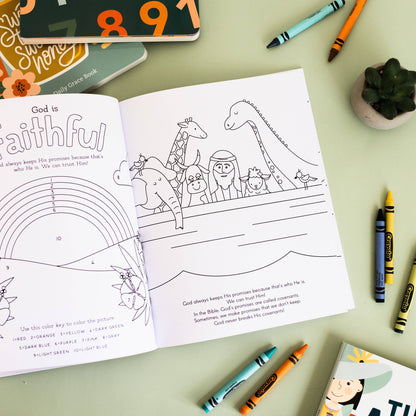 9
8
7
sweet
honey
Daily Grace Book
God is
faithful
God always keeps His promises because that's
who He is. We can trust Him!
10
9
4
Use this color key to color the picture.
1=RED 2=ORANGE 3=YELLOW 4=DARK GREEN
5=DARK BLUE 6=PURPLE 7=PINK 8=GRAY
9=LIGHT GREEN 10=LIGHT BLUE
God always keeps His promises because that's who He is.
We can trust Him!
In the Bible, God's promises are called covenants.
Sometimes, we make promises that we don't keep.
God never breaks His covenants!
Crayola
Crayola
Crayola
TH